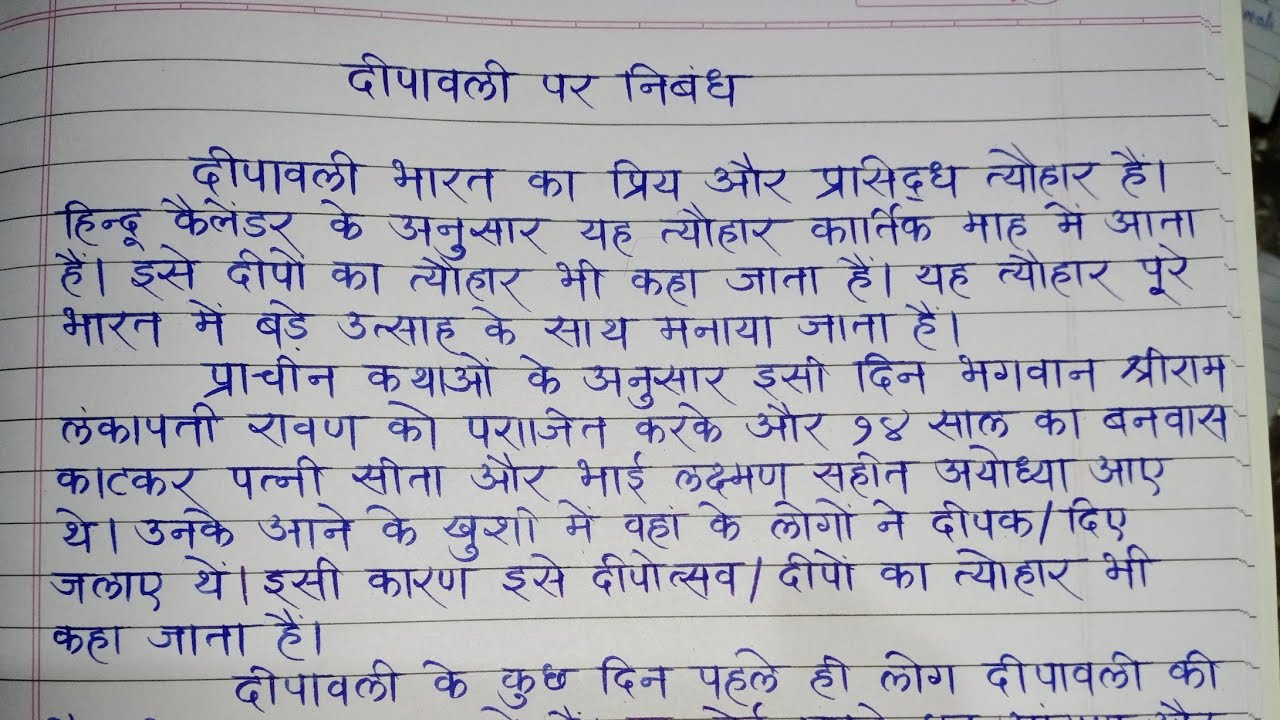 दीपावली पर निबंध
दीपावली भारत का प्रिय और प्रासिद्ध त्यौहार हैं।
हिन्दू कैलेंडर के अनुसार यह त्यौहार कार्तिक माह में आता
हैं। इसे दीपों का त्यौहार भी कहा जाता हैं। यह त्यौहार पूरे
भारत में बड़े उत्साह के साथ मनाया जाता हैं।
प्राचीन कथाओं के अनुसार इसी दिन भगवान श्रीराम
लंकापती रावण को पराजित करके और १४ साल का बनवास
काटकर पत्नी सीता और भाई लक्ष्मण सहीत अयोध्या आए
थे। उनके आने के खुशी में वहां के लोगों ने दीपक/दिए
जलाए थें। इसी कारण इसे दीपोत्सव/दीपों का त्योहार भी
कहा जाता हैं।
दीपावली के कुछ दिन पहले ही लोग दीपावली की